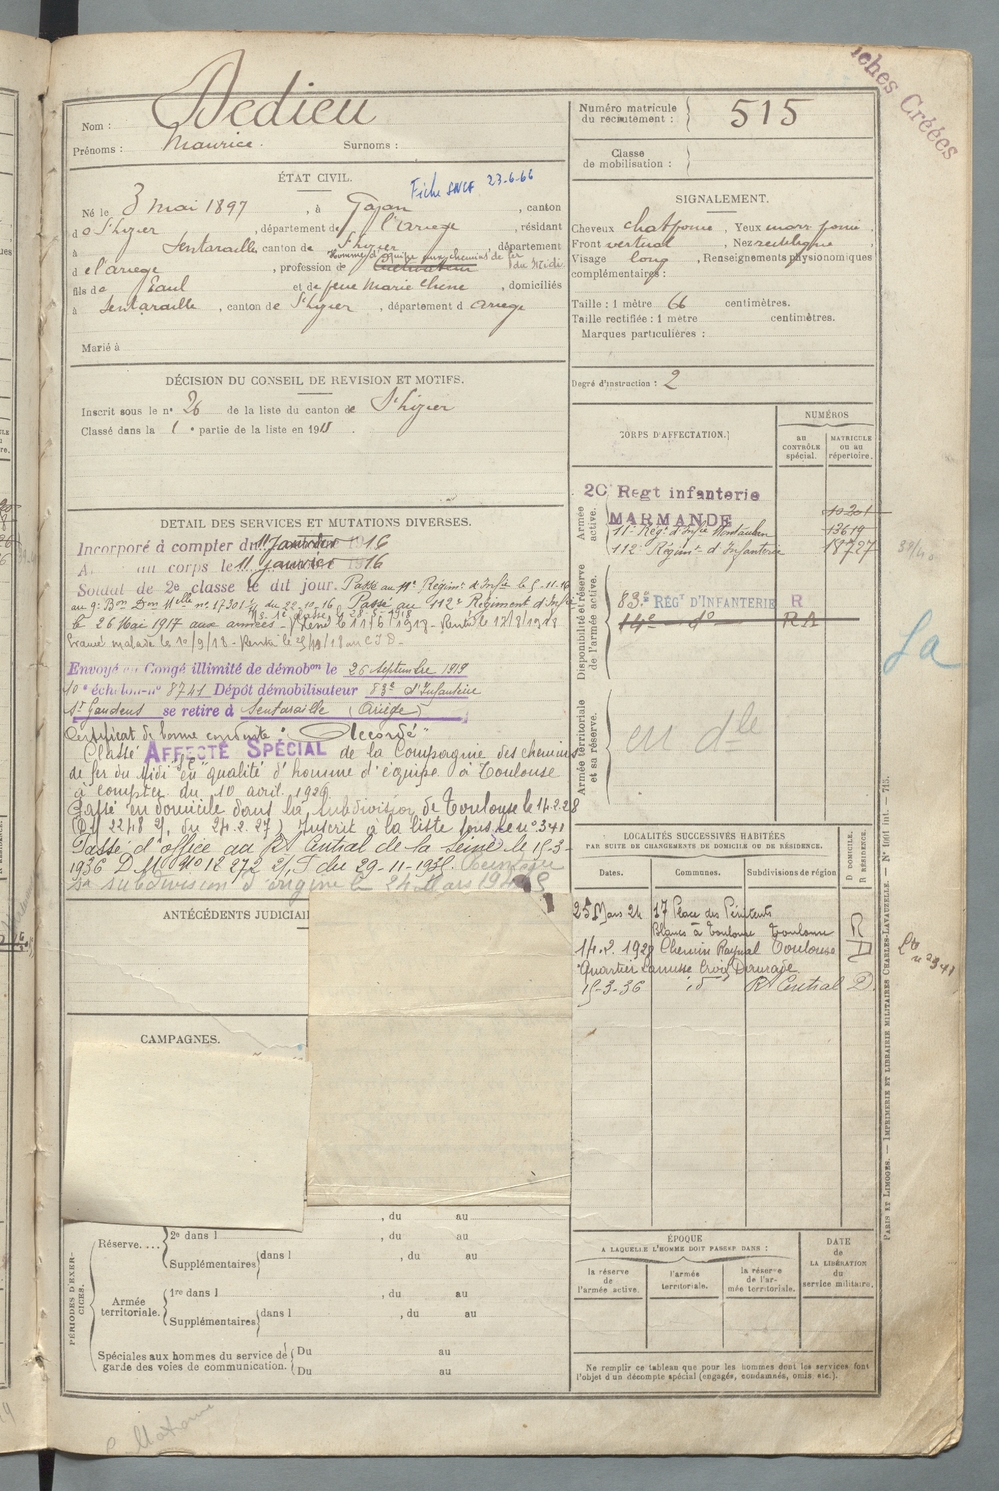 iches Créées
Nom : Dedieu
Prénoms : Maurice. Surnoms :
Numéro matricule du recrutement : 515
Classe de mobilisation :
ÉTAT CIVIL.
Fiche SNCF 23-6-66
Né le 3 mai 1897, à Gajan, canton
d o St Lizier, département de l'Ariege, résidant
à Sentaraille, canton de St Lizier, département
d e l'ariege, profession de Cultivateur
homme d'équipe aux chemins de fer du Midi
fils de Paul et de feue Marie Chene, domiciliés
à Sentaraille, canton de St Lizier, département d Ariege
Marié à
SIGNALEMENT.
Cheveux chat foncé, Yeux marr foncé,
Front vertical, Nez rectiligne,
Visage long, Renseignements physionomiques
complémentaires :
Taille : 1 mètre 66 centimètres.
Taille rectifiée : 1 mètre centimètres.
Marques particulières :
Degré d'instruction : 2
DÉCISION DU CONSEIL DE REVISION ET MOTIFS.
Inscrit sous le n° 26 de la liste du canton de St Lizier
Classé dans la 1 e partie de la liste en 191
CORPS D'AFFECTATION.
NUMÉROS
au CONTRÔLE spécial.
MATRICULE ou au répertoire.
Armée active.
20 Regt infanterie
MARMANDE 10201
11e Régt d'Infie Montauban 13619
112e Régiment d'Infanterie 18727
Disponibilité et réserve de l'armée active.
83e RÉGT D'INFANTERIE R
14e do RA
Armée territoriale et sa réserve.
en dle
Sa
DETAIL DES SERVICES ET MUTATIONS DIVERSES.
Incorporé à compter du 11 Janvier 1916
A au corps le 11 janvier 1916
Soldat de 2e classe le dit jour. Passé au 11e Régimt d'Infie le 5-11-16
au 9e Bon Don Mlle n° 17301 du 22-10-16 Passé au 112e Régiment d'Infie
le 26 Mai 1917 aux armées
Evacué malade le 10/9/18 - Rentré le
Envoyé en Congé illimité de démobon le 26 Septembre 1919
10e échelon n° 8741 Dépôt démobilisateur 83e d'Infanterie
St Gaudens se retire à Sentaraille (Ariège)
Certificat de bonne conduite : "Accordé"
Classé AFFECTÉ SPÉCIAL de la Compagnie des chemins
de fer du Midi en qualité d'homme d'équipe à Toulouse
à compter du 10 avril 1920
Passé en domicile dans la subdivision de Toulouse le 14.2.28
Inscrit à la liste sous le n° 341
Passé d'office au Rt Central de la Seine le 15-3-
1936 D. M. N° 12 272 2/ du 29-11-1935.
sa subdivision d'origine le 24 Mars
ANTÉCÉDENTS JUDICIAI
CAMPAGNES.
LOCALITÉS SUCCESSIVES HABITÉES
PAR SUITE DE CHANGEMENTS DE DOMICILE OU DE RÉSIDENCE.
D DOMICILE. R RÉSIDENCE.
Dates. Communes. Subdivisions de région
25 Mars 24 17 Place des Pénitents
Blancs à Toulouse Toulouse R
14.2.1928 Chemin Raynal Toulouse D
Quartier Lamusse Croix Daurade
15-3-36 id Rt Central D.
Lte n° 2341
PARIS ET LIMOGES. — IMPRIMERIE ET LIBRAIRIE MILITAIRES CHARLES-LAVAUZELLE. — N° 1061 int. — 715.
PÉRIODES D'EXERCICES.
, du au
Réserve.... 2e dans l , du au
Supplémentaires dans l , du au
Armée territoriale. 1re dans l , du au
Supplémentaires dans l , du au
Spéciales aux hommes du service de garde des voies de communication. Du au
Du au
ÉPOQUE
A LAQUELLE L'HOMME DOIT PASSER DANS :
la réserve de l'armée active.
l'armée territoriale.
la réserve de l'armée territoriale.
DATE de LA LIBÉRATION du service militaire.
Ne remplir ce tableau que pour les hommes dont les services font
l'objet d'un décompte spécial (engagés, condamnés, omis etc.).